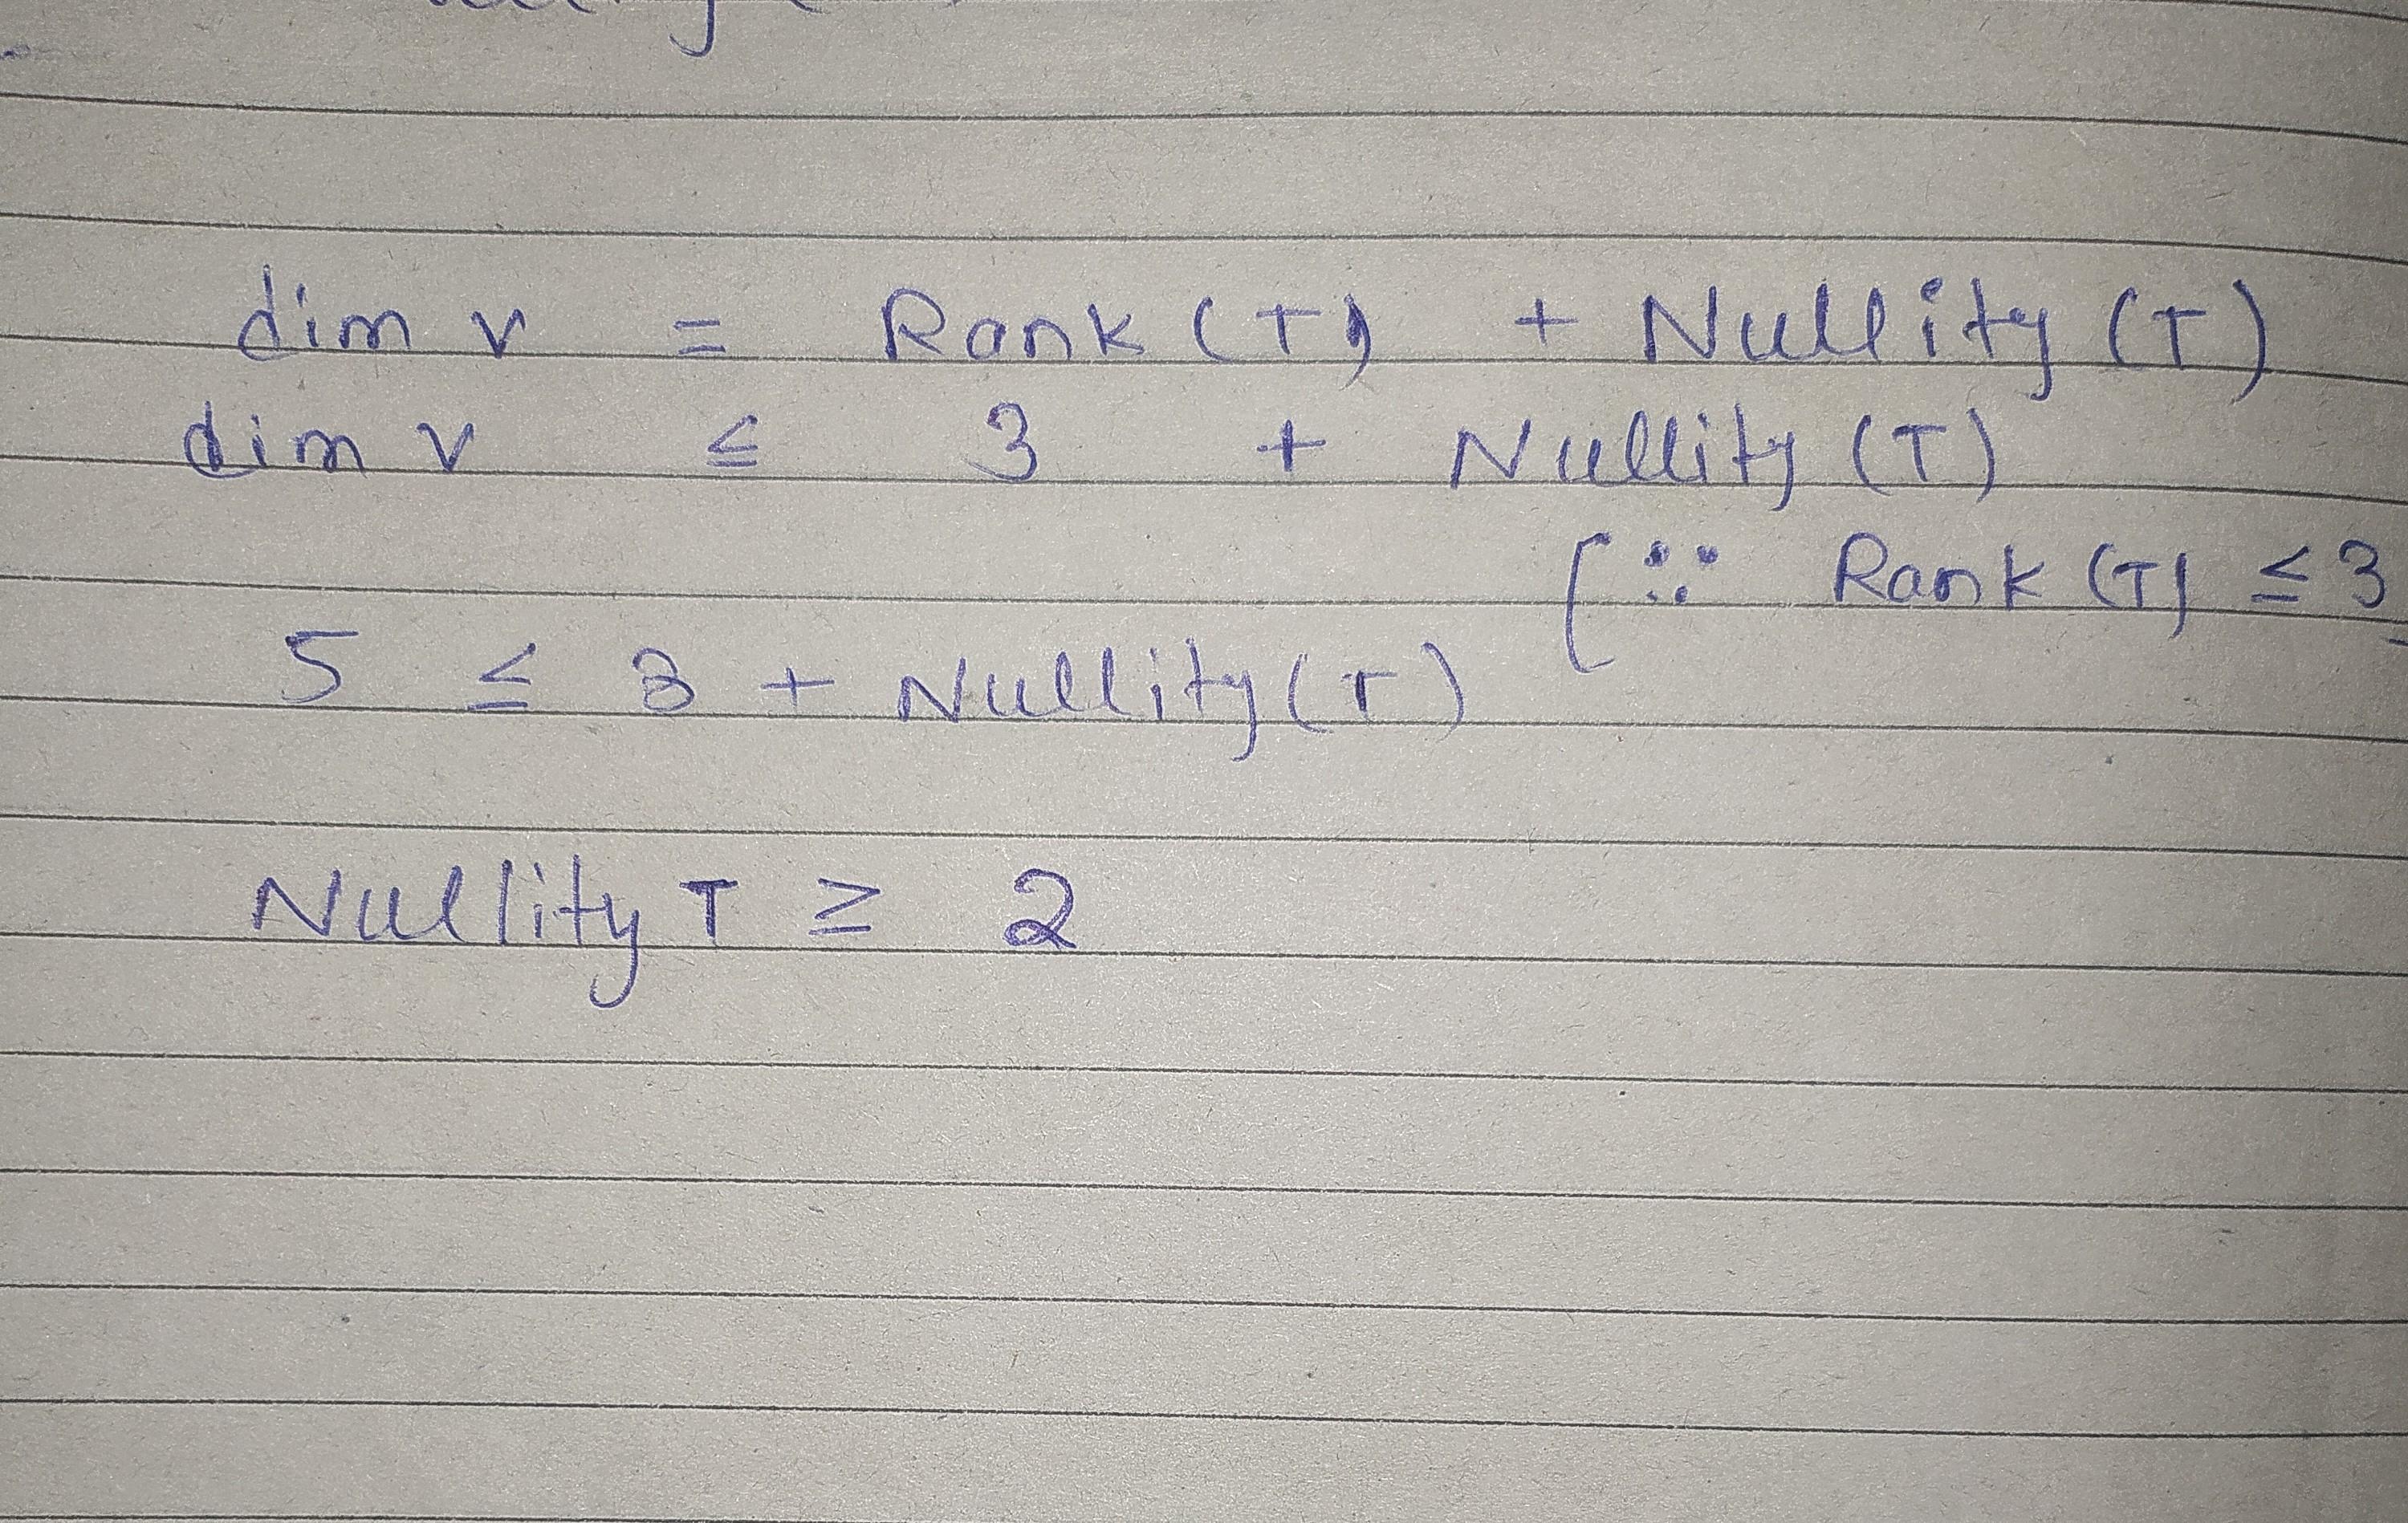 dim v = Rank (T) + Nullity (T)
dim v ≤ 3 + Nullity (T)
[∵ Rank (T) ≤ 3
5 ≤ 3 + Nullity (T)
Nullity T ≥ 2